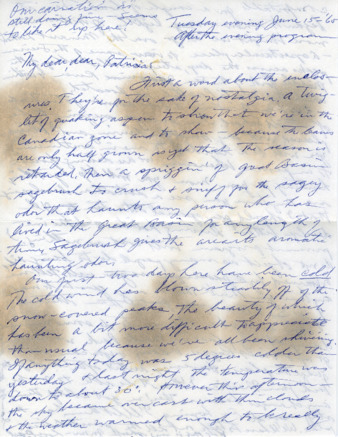 Our carnation is
still doing fine. Seems
to like it up here!
Tuesday evening June 15-'65
After the evening program
My dear dear, Patricia:
Just a word about the enclos-
ures. They're for the sake of nostalgia. A twig-
let of quaking aspen to show that we're in the
Canadian zone and to show because the leaves
are only half grown as yet that the season is
retarded. Then a spriglet of Great Basin
sagebrush to crush & sniff for the sagey
odor that haunts any person who has
lived in the Great Basin for any length of
time. Sagebrush gives the area its aromatic
haunting odor.
Our first two days here have been cold
The cold wind has blown steadily off of the
snow-covered peaks, the beauty of which
has been a bit more difficult to appreciate
than usual because we've all been shivering.
If anything today was 5 degrees colder than
yesterday & last night the temperature was
down to about 30°. However this afternoon
the sky became overcast with thin clouds
& the weather warmed enough to be really